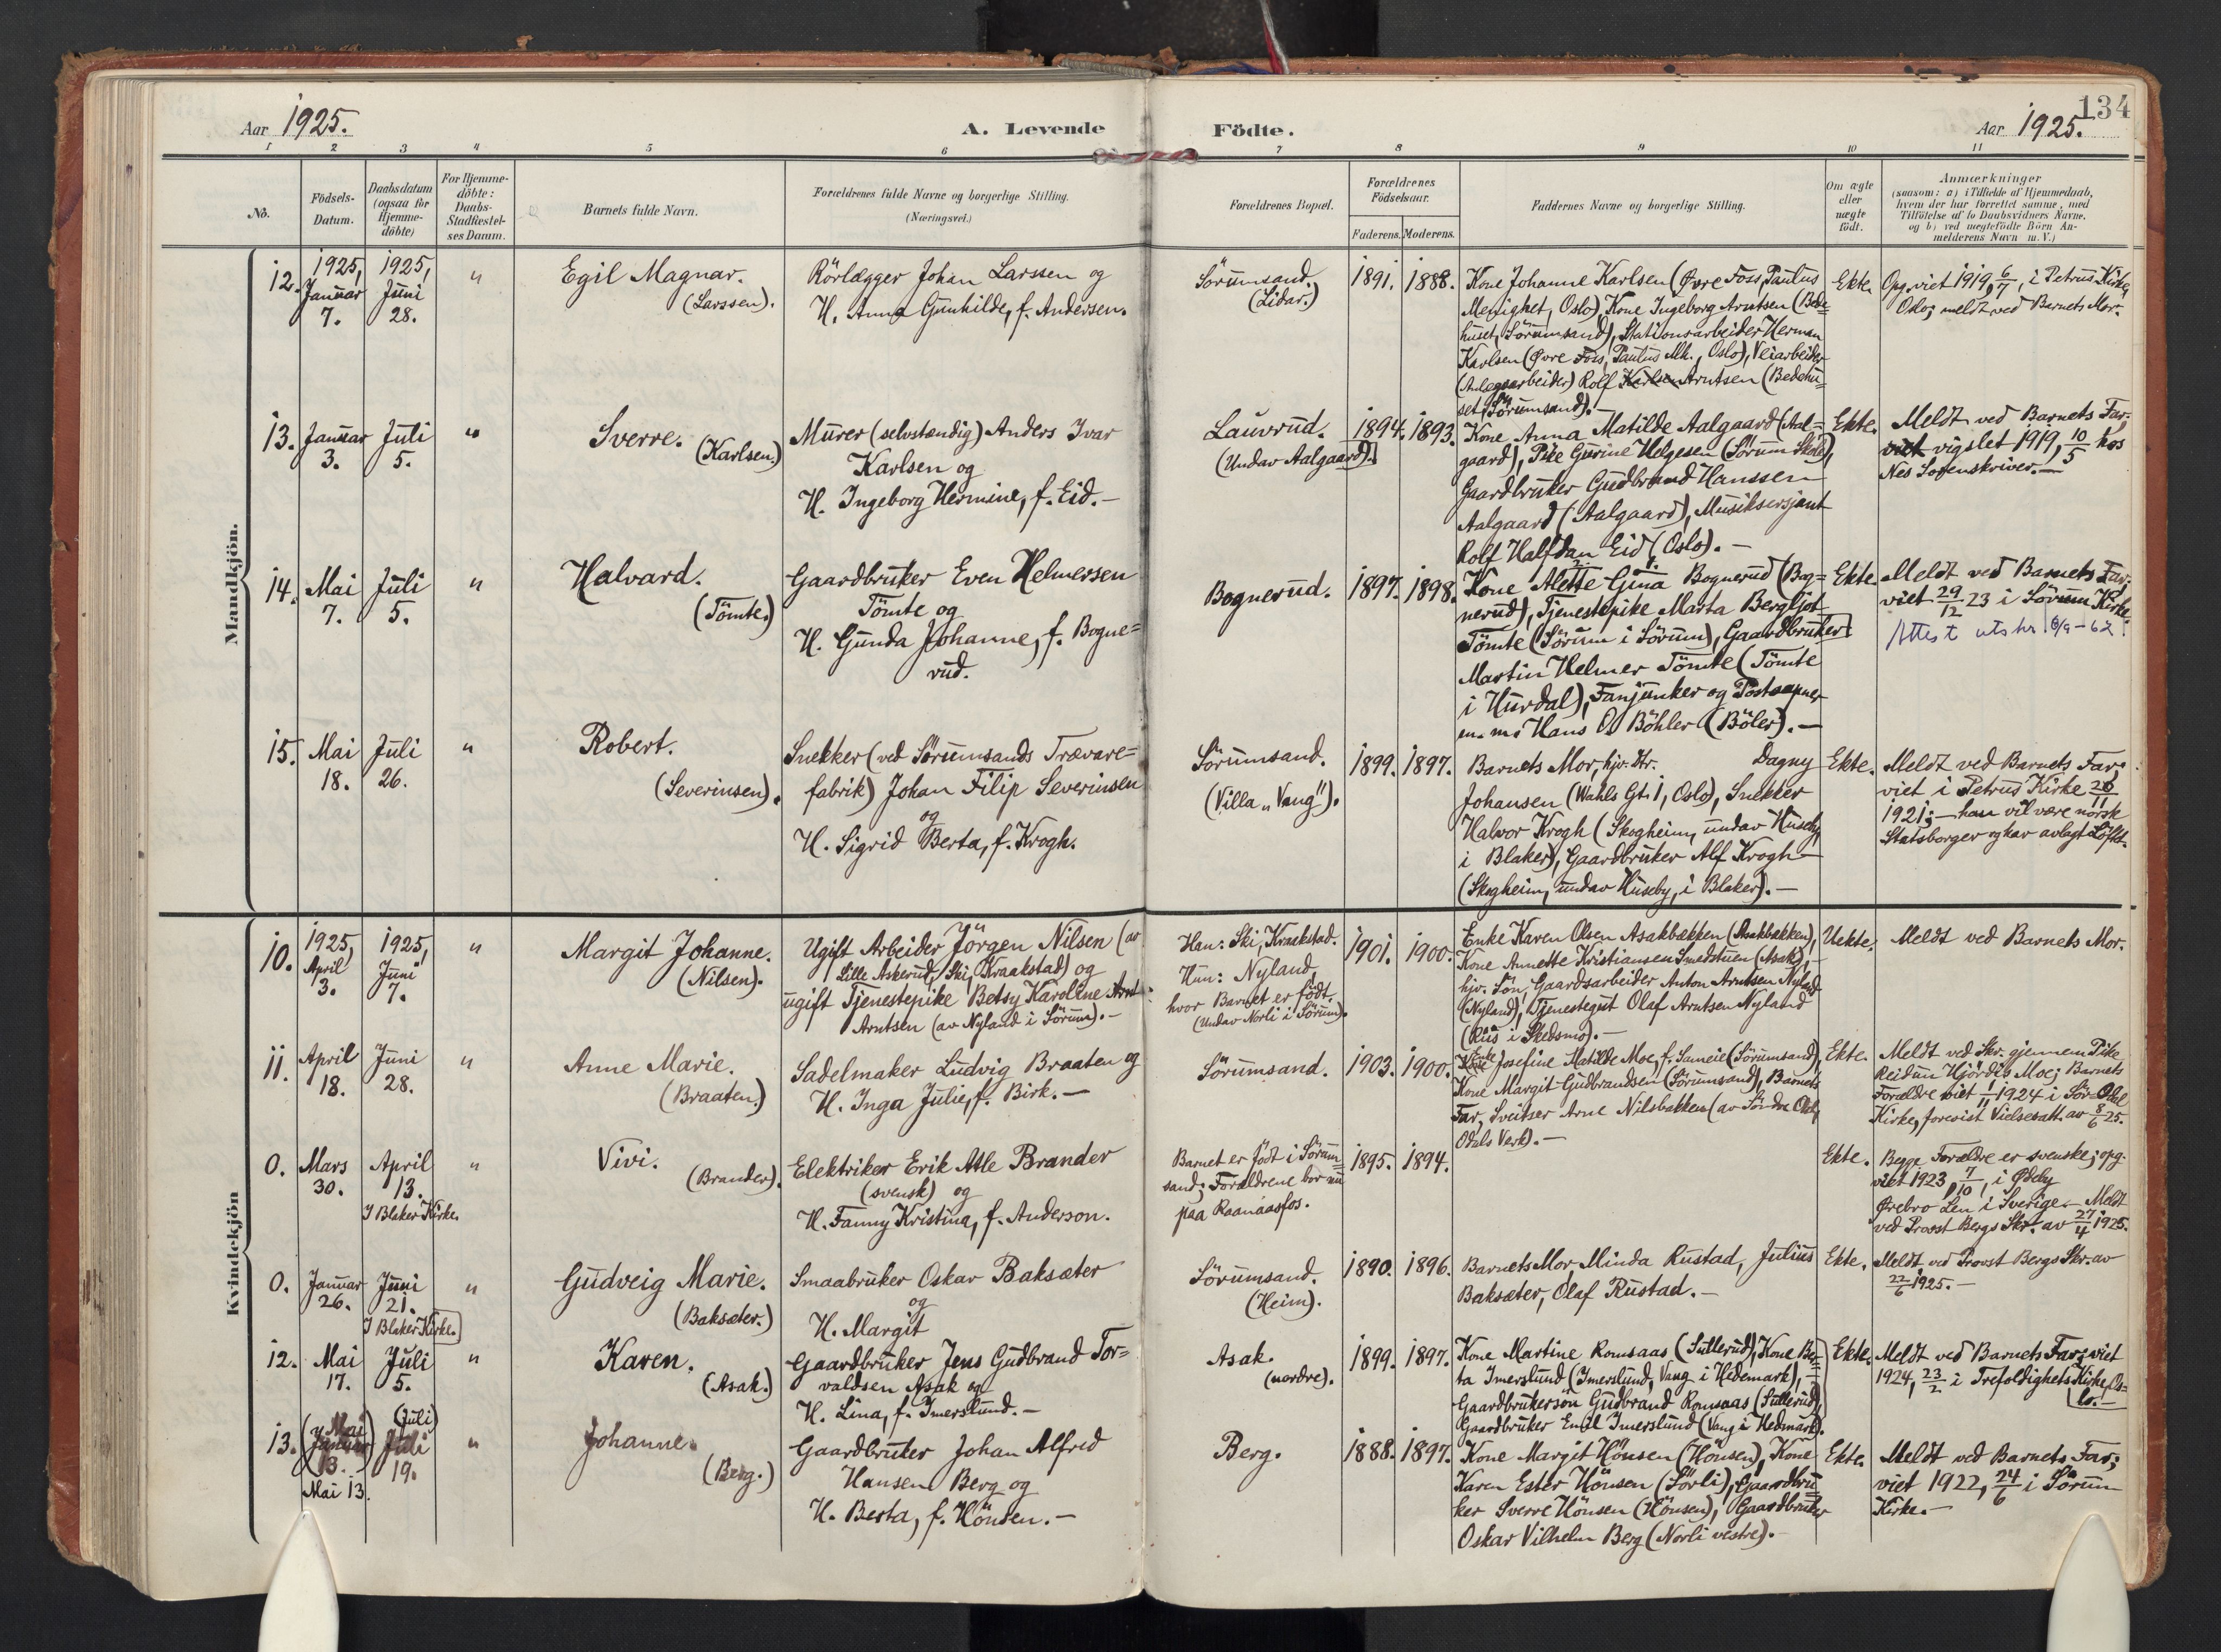 134
Aar 1925.
A. Levende Födte.
Aar 1925.
1 2 3 4 5 6 7 8 9 10 11
No.
Födsels-
Datum.
Daabsdatum
(ogsaa for
Hjemme-
döbte)
For Hjemme-
döbte:
Daabs-
Stadfæstel-
ses Datum.
Barnets fulde Navn.
Forældrenes fulde Navne og borgerlige Stilling.
(Næringsvei.)
Forældrenes Bopæl.
Forældrenes
Födselsaar.
Faderens. Moderens.
Faddernes Navne og borgerlige Stilling.
Om ægte
eller
uægte
født.
Anmærkninger
(saasom: a) i Tilfælde af Hjemmedaab,
hvem der har forrettet samme, med
Tilföielse af to Daabsvidners Navne.
og b) ved uægtefödte Börn An-
melderens Navn m. V.)
Mandkjön.
12.
1925,
Januar
7.
1925,
Juni
28.
"
Egil Magnar.
(Larssen).
Rörlægger Johan Larssen og
H. Anna Gunhilde, f. Andersen.
Sörumsand.
(Lidar.)
1891. 1888.
Kone Johanne Karlsen (Øvre Foss, Paulus
Menighet, Oslo), Kone Ingeborg Arntsen (Bede=
huset, Sörumsand), Stationsarbeider Herman
Karlsen (Øvre Foss, Paulus Mh., Oslo), Veiarbeider
(Anlægsarbeider) Rolf Karlsen Arntsen (Bedehu=
set, Sörumsand). —
Ekte.
Opg. viet 1919, 6/7, i Petrus Kirke,
Oslo; meldt ved Barnets Mor.
13. Januar
3.
Juli
5.
"
Sverre.
(Karlsen.)
Murer (selvstændig) Anders Ivar
Karlsen og
H. Ingeborg Hermine, f. Eid. —
Lauvrud.
(Undav Aalgaard).
1894. 1893.
Kone Anna Matilde Aalgaard (Aal=
gaard), Pike Gurine Helgesen (Sörum Skole),
Gaardbruker Gudbrand Hanssen
Aalgaard (Aalgaard), Musiksersjant
Rolf Halfdan Eid (Oslo). —
Ekte.
Meldt ved Barnets Far;
viet vigslet 1919, 10/5 hos
Nes Sorenskriver. —
14. Mai
7.
Juli
5.
"
Halvard.
(Tömte.)
Gaardbruker Even Helmersen
Tömte og
H. Gunda Johanne, f. Bogne=
rud.
Bognerud.
1897. 1898.
Kone Alette Gina Bognerud (Bog=
nerud), Tjenestepike Marta Bergljot
Tömte (Sörum i Sörum), Gaardbruker
Martin Helmer Tömte (Tömte
i Hurdal), Fanjunker og Postaapner
m. m. Hans O. Böhler (Böler). —
Ekte
Meldt ved Barnets Far;
viet 29/12 23 i Sörum Kirke.
Attest utstr. 6/9-62.
15. Mai
18.
Juli
26.
"
Robert.
(Severinsen).
Snekker (ved Sörumsands Trævare=
fabrik) Johan Filip Severinsen
og
H. Sigrid Berta, f. Krogh.
Sörumsand.
(Villa „Vang").
1899. 1897.
Barnets Mor, hjv. Dtr. Dagny
Johansen (Wahls Gt. 1, Oslo), Snekker
Halvor Krogh (Skogheim, undav Huseby,
i Blaker), Gaardbruker Alf Krogh
(Skogheim, undav Huseby, i Blaker). —
Ekte.
Meldt ved Barnets Far;
viet i Petrus Kirke 26/11
1921; — han vil være norsk
Statsborger og har avlagt Löfte.
Kvindekjön
10.
1925,
April
3.
1925,
Juni
7.
"
Margit Johanne.
(Nilsen).
Ugift Arbeider Jörgen Nilsen (av
Lille Askerud, Ski, Kraakstad) og
ugift Tjenestepike Betsy Karoline Arnt
Arntsen (av Nyland i Sörum). —
Han: Ski, Kraakstad.
Hun: Nyland,
hvor Barnet er födt.
(Undav Norli i Sörum).
1901. 1900.
Enke Karen Olsen Asakbakken (Asakbakken),
Kone Annette Kristiansen Smedstuen (Asak), —
hjv. Sön, Gaardsarbeider Anton Arntsen Nyland
(Nyland), Tjenestegut Olaf Arntsen Nyland
(Rus i Skedsmo). —
Uekte.
Meldt ved Barnets Mor.
11. April
18.
Juni
28.
"
Anne Marie.
(Braaten.)
Sadelmaker Ludvig Braaten og
H. Inga Julie, f. Birk. —
Sörumsand.
1903. 1900.
Enke
Kone Josefine Matilde Moe, f. Sameie (Sörumsand),
Kone Margit Gudbrandsen (Sörumsand), Barnets
Far, Sveitser Arne Nilsbakken (av Söndre
Odals Verk). —
Ekte.
Meldt ved Skr. gjennem Pike
Reidun Hjördis Moe; Barnets
Forældre viet 1/11 1924 i Sör-Odal
Kirke, forevist Vielsesatt. av 8/6 25.
0. Mars
30.
April
13.
I Blaker Kirke.
"
Vivi.
(Brander).
Elektriker Erik Atle Brander
(svensk) og
H. Fanny Kristina, f. Anderson.
Barnet er födt i Sörum=
sand; Forældrene bor nu
paa Raanaasfos.
1895. 1894.
Ekte.
Begge Forældre er svenske; opg.
viet 1923, 7/10, i
Ørebro Len i Sverige. — Meldt
ved Provst Bergs Skr. av 27/4 1925.
0. Januar
26.
Juni
21.
I Blaker Kirke.
"
Gudveig Marie.
(Baksæter.)
Smaabruker Oskar Baksæter
og
H. Margit
Sörumsand.
(Heim).
1890. 1896.
Barnets Mor, Minda Rustad, Julius
Baksæter, Olaf Rustad. —
Ekte.
Meldt ved Provst Bergs Skr. av
22/6 1925. —
12. Mai
17.
Juli
5.
"
Karen.
(Asak.)
Gaardbruker Jens Gudbrand Tor=
valdsen Asak og
H. Lina, f. Imerslund. —
Asak.
(nordre).
1899. 1897.
Kone Martine Romsaas (Sutterud), Kone Ber=
ta Imerslund (Imerslund, Vang i Hedemark), —
Gaardbrukersön Gudbrand Romsaas (Sutterud),
Gaardbruker Emil Imerslund (Vang i Hedmark).
Ekte.
Meldt ved Barnets Far; viet
1924, 23/2 i Trefoldighets Kirke, Os=
lo. —
13.
(Mai)
Januar
13.
Mai 13.
(Juli)
Juli
19.
"
Johanne.
(Berg.)
Gaardbruker Johan Alfred
Hansen Berg og
H. Berta, f. Hönsen. —
Berg.
1888. 1897.
Kone Margit Hönsen (Hönsen), Kone
Karen Ester Hönsen (Sörli), Gaardbru=
ker Sverre Hönsen (Hönsen), Gaardbruker
Oskar Vilhelm Berg (Norli vestre). —
Ekte.
Meldt ved Barnets Far;
viet 1922, 24/6 i Sörum
Kirke. —